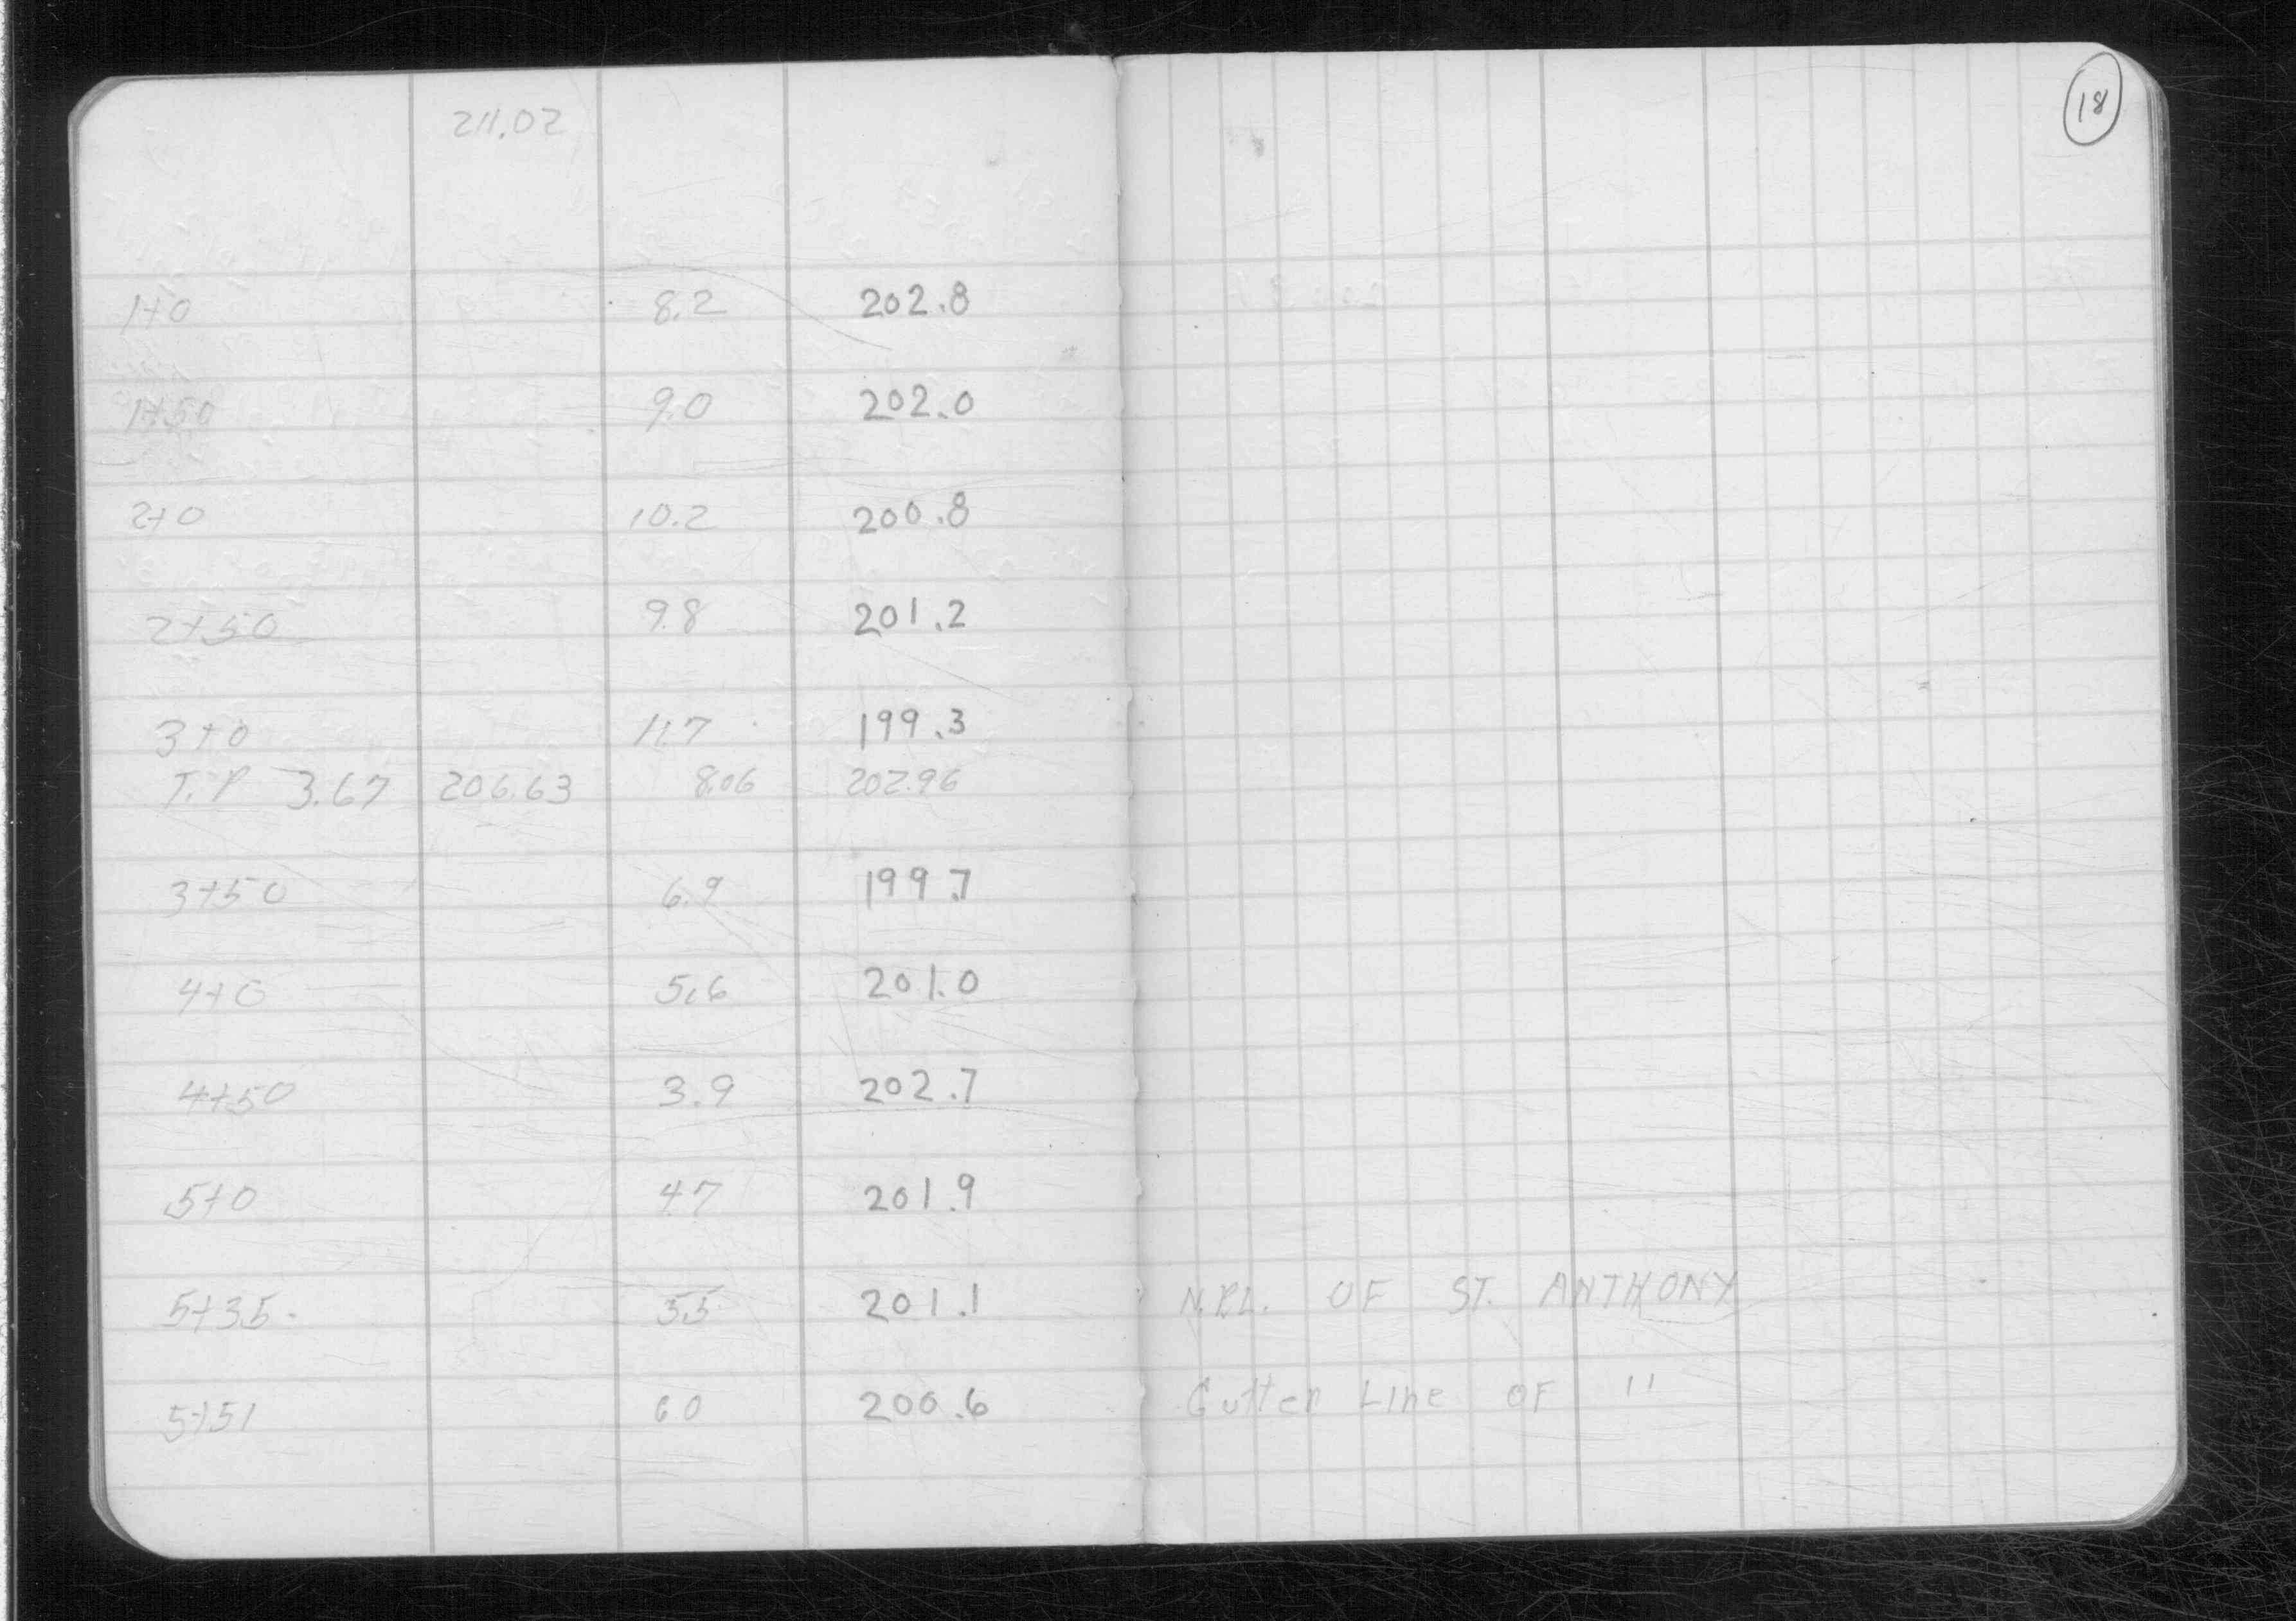 18
211.02
1+0 8.2 202.8
1+50 9.0 202.0
2+0 10.2 200.8
2+50 9.8 201.2
3+0 11.7 199.3
T.P 3.67 206.63 8.06 202.96
3+50 6.9 199.7
4+0 5.6 201.0
4+50 3.9 202.7
5+0 4.7 201.9
5+35 5.5 201.1 N.P.L. OF ST. ANTHONY
5+51 6.0 200.6 Gutter Line OF "